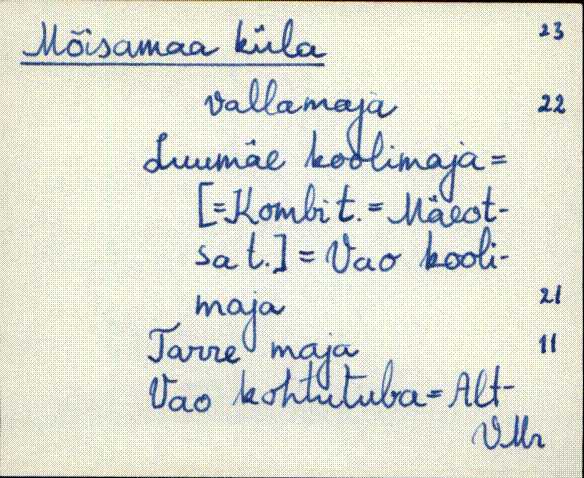 Mõisamaa küla 23
vallamaja 22
Luumäe koolimaja =
[=Kombi t. = Mäeot-
sa t.] = Vao kooli-
maja 21
Tarre maja 11
Vao kohtutuba = Alt-
VMr